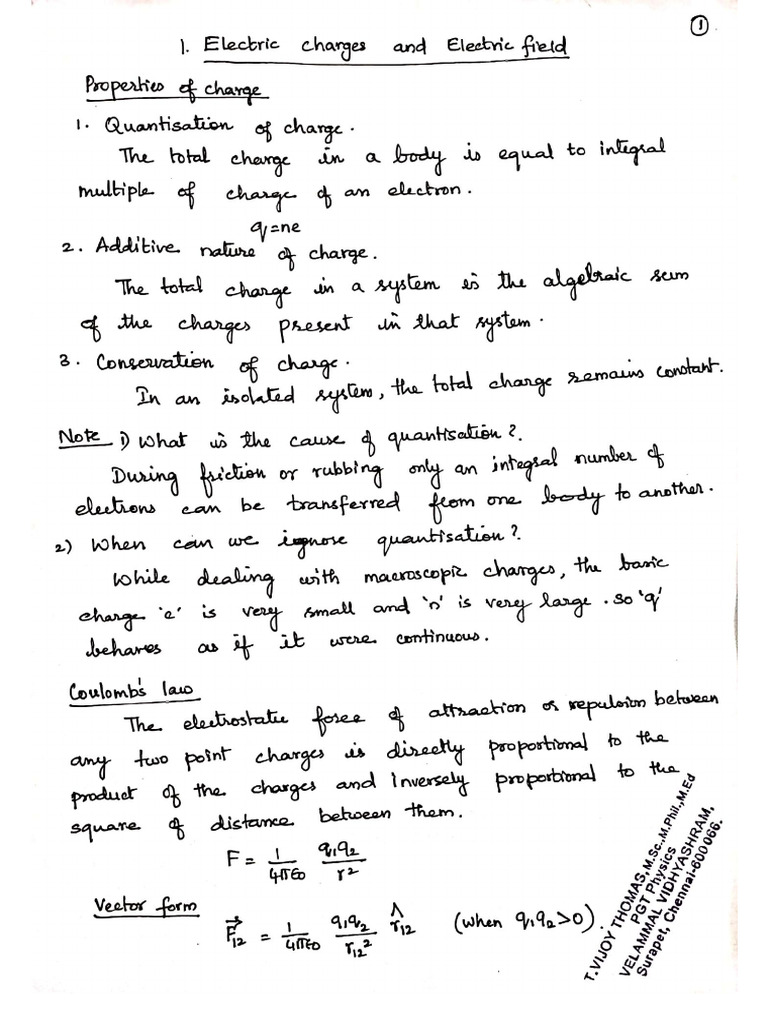 1
1. Electric charges and Electric field
Properties of charge
1. Quantisation of charge.
The total charge in a body is equal to integral
multiple of charge of an electron.
q=ne
2. Additive nature of charge.
The total charge in a system is the algebraic sum
of the charges present in that system.
3. Conservation of charge.
In an isolated system, the total charge remains constant.
Note 1) What is the cause of quantisation?.
During friction or rubbing only an integral number of
electrons can be transferred from one body to another.
2) When can we ignore quantisation?.
While dealing with macroscopic charges, the basic
charge 'e' is very small and 'n' is very large. So 'q'
behaves as if it were continuous.
Coulomb's law
The electrostatic force of attraction or repulsion between
any two point charges is directly proportional to the
product of the charges and Inversely proportional to the
square of distance between them.
F = 1/4πε0 q1q2/r2
Vector form
F⃗12 = 1/4πε0 q1q2/r12² r̂12 (when q1q2>0).
T.VIJOY THOMAS, M.Sc.,M.Phil.,M.Ed
PGT Physics
VELAMMAL VIDHYASHRAM,
Surapet, Chennai-600066.